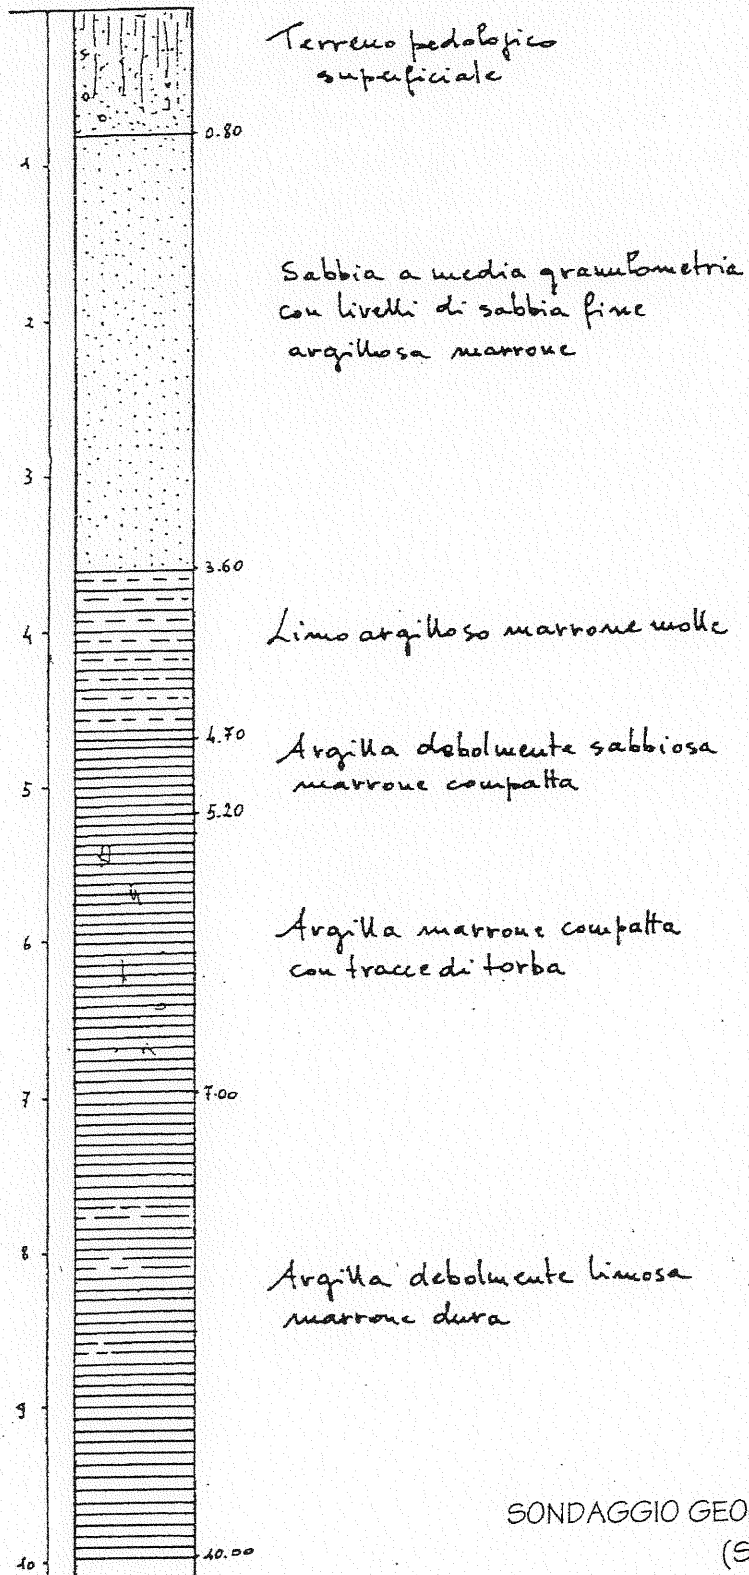 Terreno pedologico
superficiale
0.80
1
Sabbia a media granulometria
con livelli di sabbia fine
argillosa marrone
2
3
3.60
4
Limo argilloso marrone molle
4.70
Argilla debolmente sabbiosa
marrone compatta
5
5.20
Argilla marrone compatta
con tracce di torba
6
7
7.00
8
Argilla debolmente limosa
marrone dura
9
SONDAGGIO GEO
(S
10.00
10